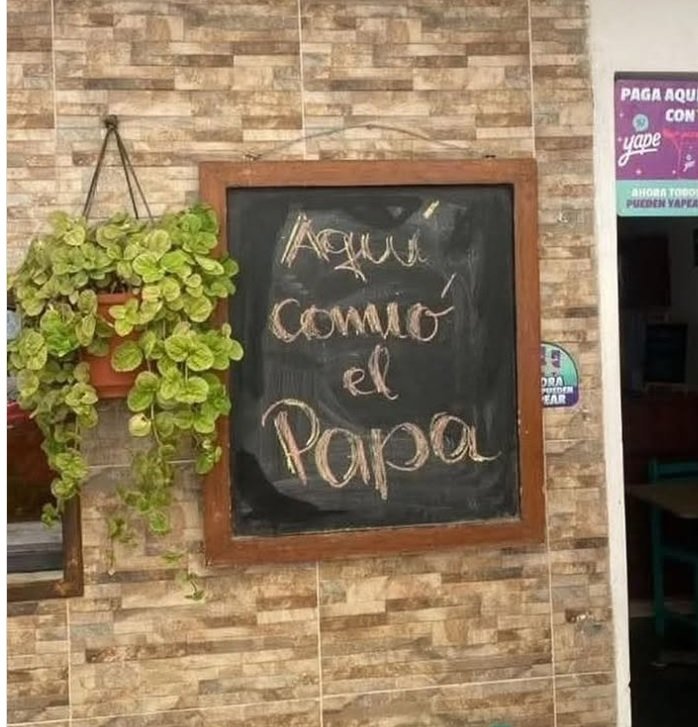 Aquí
comió
el
Papa
PAGA AQU
CON
yape
AHORA TODO
PUEDEN YAPEA
ORA
PUEDEN
PEAR